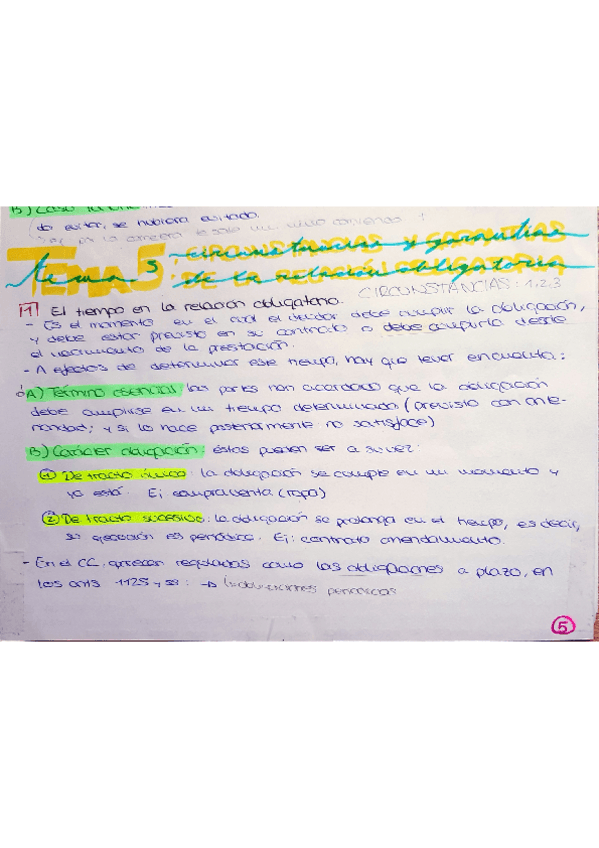 B) Caso
do evitar, se hubiera evitado.
Tema 5: CIRCUNSTANCIAS Y GARANTÍAS
DE LA RELACIÓN OBLIGATORIA
tema 5 circunstancias y garantías
de la relación obligatoria
CIRCUNSTANCIAS: 1,2,3
1 El tiempo en la relación obligatoria.
- Es el momento en el cual el deudor debe cumplir la obligación,
y debe estar previsto en su contrato o debe cumplirla desde
el vencimiento de la prestación.
- A efectos de determinar este tiempo, hay que tener en cuenta:
A) Término esencial: las partes han acordado que la obligación
debe cumplirse en un tiempo determinado (previsto con ante-
rioridad; y si lo hace posteriormente no satisface)
B) Carácter obligación: éstas pueden ser a su vez:
1 De tracto único: la obligación se cumple en un momento y
ya está. Ej compraventa (ropa)
2 De tracto sucesivo: la obligación se prolonga en el tiempo, es decir,
su ejecución es periódica. Ej: contrato arrendamiento.
- En el CC, aparecen reguladas como las obligaciones a plazo, en
los arts 1125 y ss: → obligaciones periódicas
5